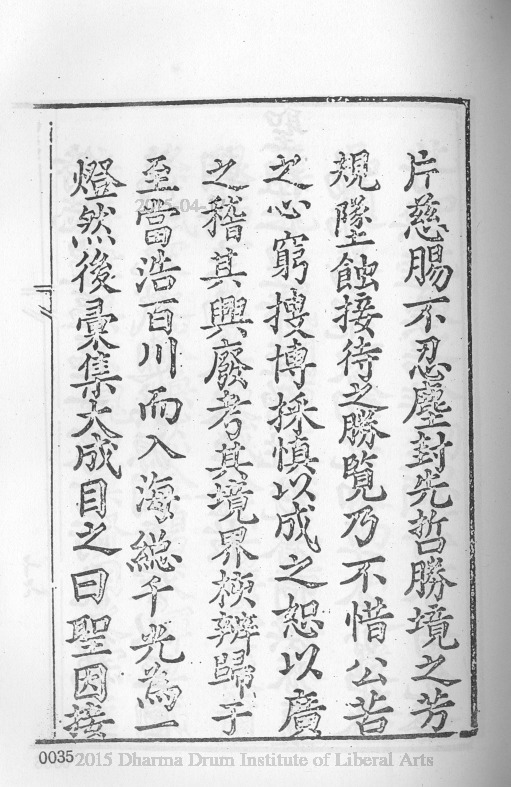 片慈腸不忍塵封先哲勝境之芳
規墜蝕接待之勝覽乃不惜公苦
之心窮搜博採慎以成之恕以廣
之稽其興廢考其境界極辨歸于
至當浩百川而入海總千光為一
燈然後彙集大成目之曰聖因接
2015-04-
0035
2015 Dharma Drum Institute of Liberal Arts